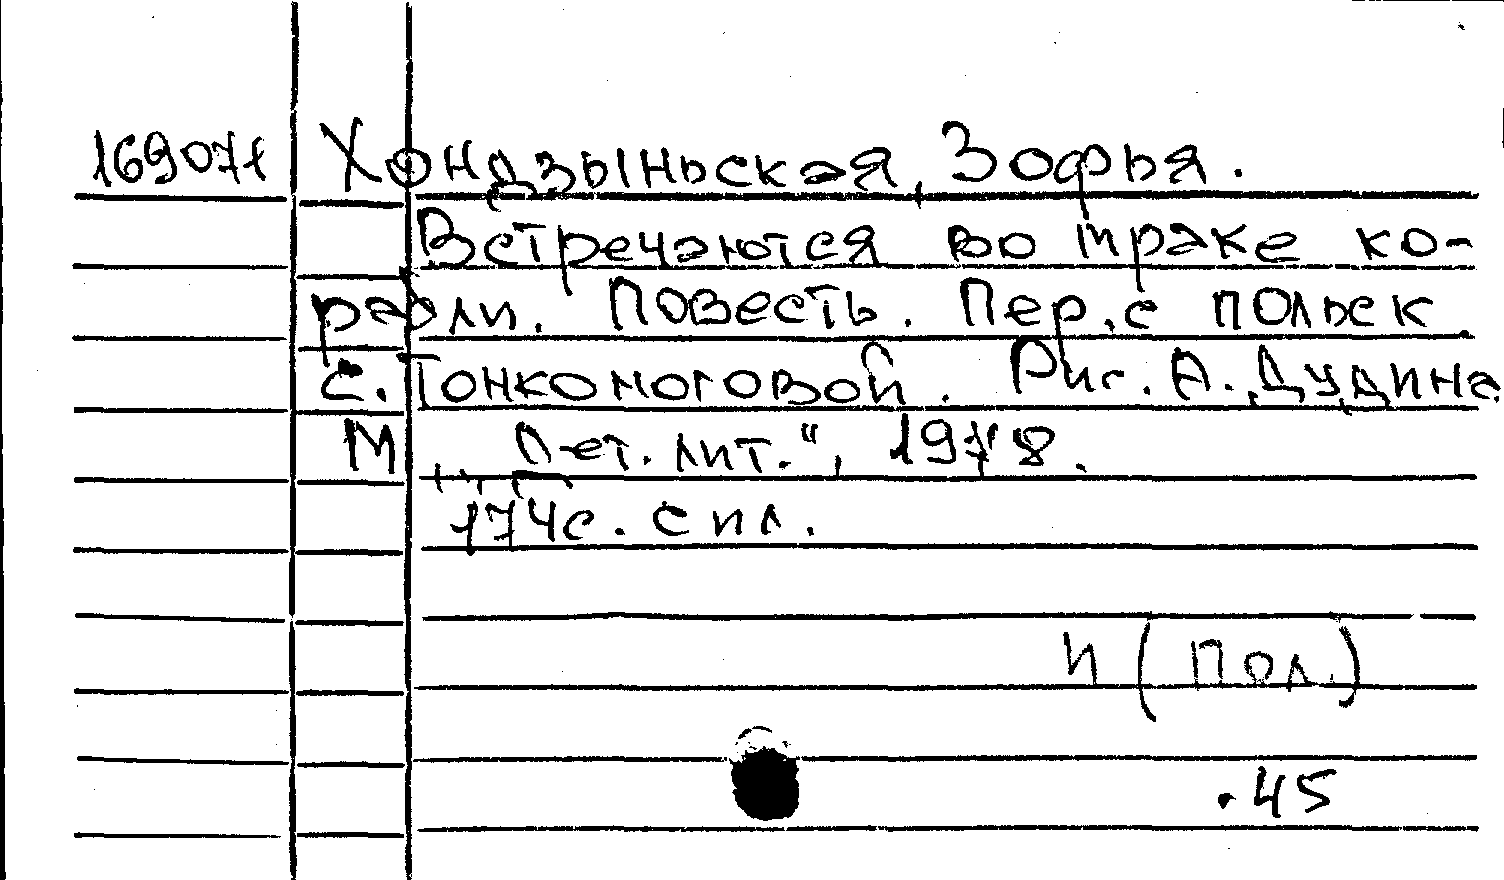 169071 Хондзыньская, Зофья.
Встречаются во мраке ко-
рабли. Повесть. Пер. с польск.
С. Тонконоговой. Рис. А. Дудина.
М., „Дет. лит.“, 1978.
174с. с ил.
И (Пол.)
.45